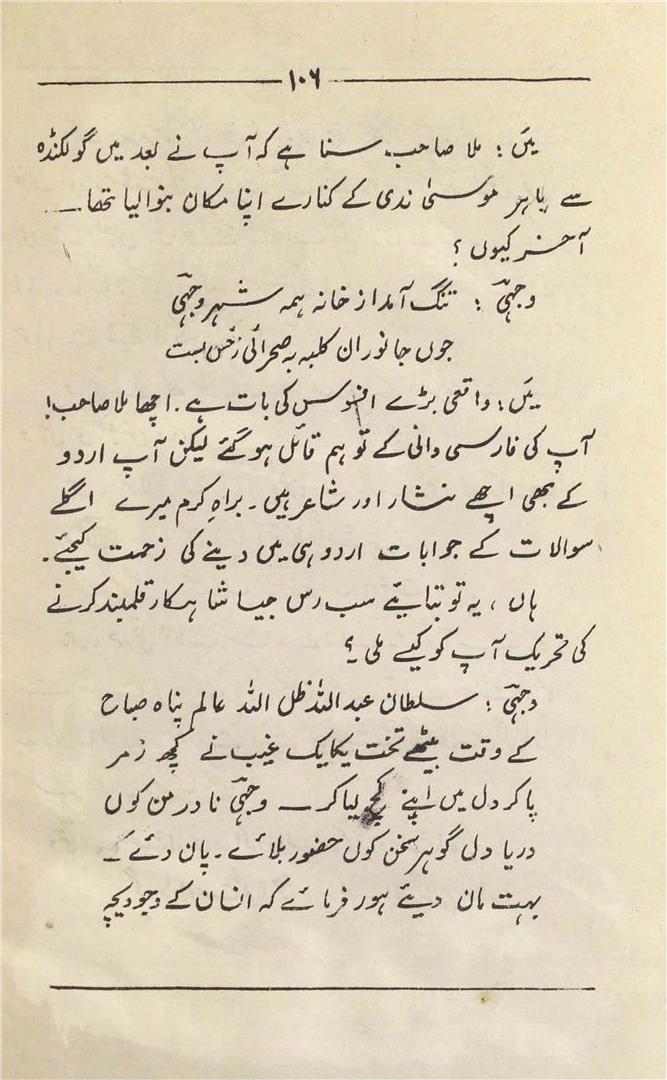 ۱۰۶
میں: ملا صاحب۔ سنا ہے کہ آپ نے بعد میں گولکنڈہ
سے باہر موسیٰ ندی کے کنارے اپنا مکان بنوالیا تھا۔
آخر کیوں؟
وجہیؔ: تنگ آمد از خانہ ہمہ شہر وجہیؔ
جوں جانوران کلبہ بہ صحرائی زخس بست
میں: واقعی بڑے افسوس کی بات ہے۔ اچھا ملا صاحب!
آپ کی فارسی دانی کے تو ہم قائل ہوگئے لیکن آپ اردو
کے بھی اچھے نثار اور شاعر ہیں۔ براہِ کرم میرے اگلے
سوالات کے جوابات اردو ہی میں دینے کی زحمت کیجئے۔
ہاں، یہ تو بتائیے سب رس جیسا شاہکار قلمبند کرنے
کی تحریک آپ کو کیسے ملی۔؟
وجہیؔ: سلطان عبداللہ ظل اللہ عالم پناہ صباح
کے وقت بیٹھے تخت یکایک غیب نے کچھ رمز
پاکر دل میں اپنے کچھ لیاکر۔ وجہیؔ نادر من کوں
دریا دل گوہر سخن کوں حضور بلائے۔ پان دئے۔
بہت مان دیئے ہور فرمائے کہ انسان کے وجود یچہ